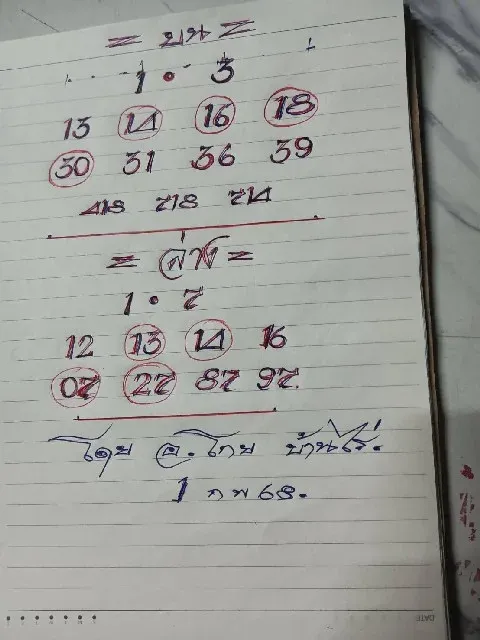 = บน =
1 • 3
13 14 16 18
30 31 36 39
418 718 714
= ล่าง =
1 • 7
12 13 14 16
07 27 87 97.
โดย อ. โกย บ้านไร่.
1 กพ 68.
DATE